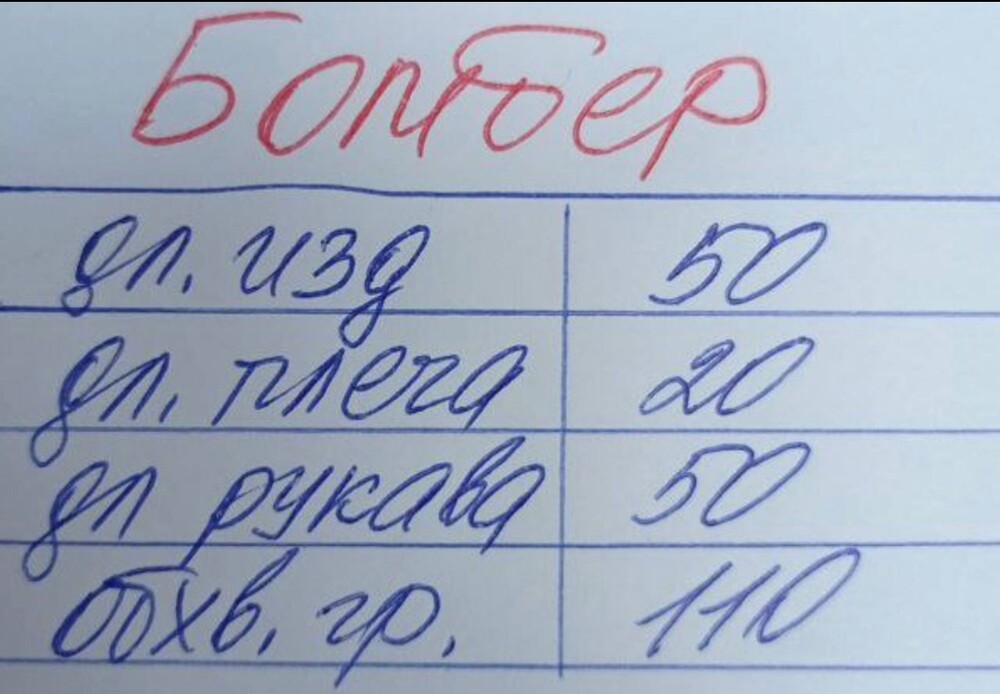 Бомбер
дл. изд 50
дл. плеча 20
дл рукава 50
обхв. гр. 110